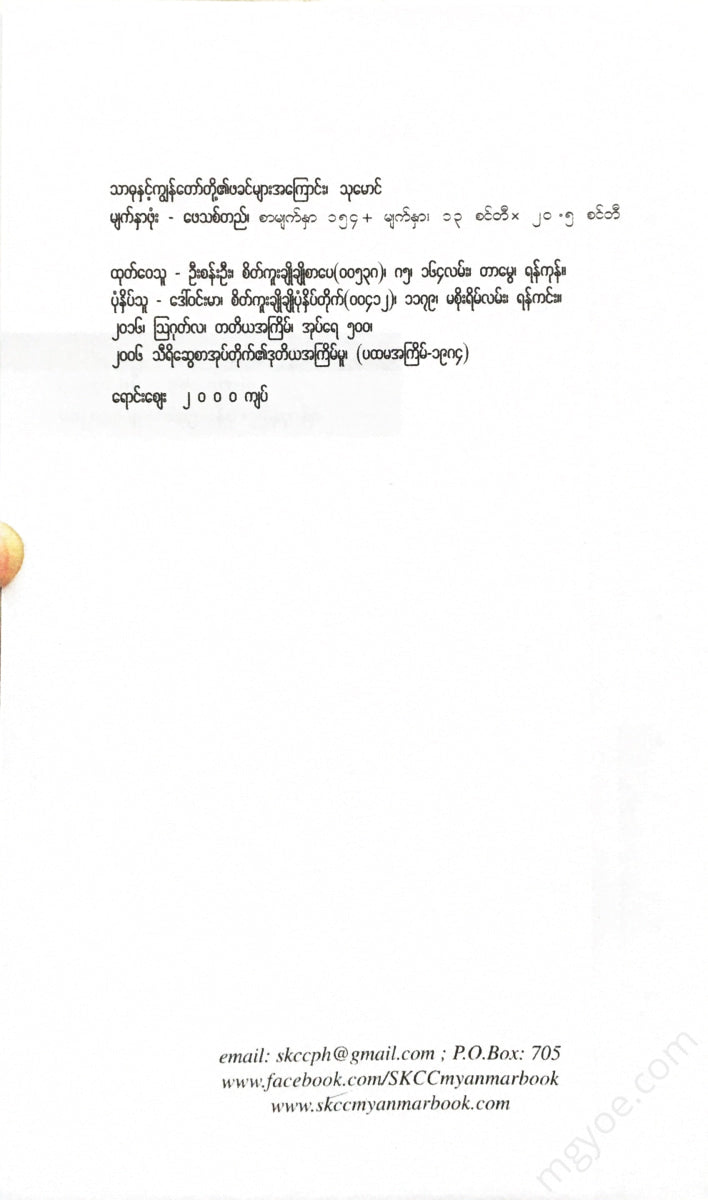 သာဓုနှင့်ကျွန်တော်တို့၏ဖခင်များအကြောင်း၊ သုမောင်
မျက်နှာဖုံး - ဖေသစ်တည်၊ စာမျက်နှာ ၁၅၄ + မျက်နှာ၊ ၁၃ စင်တီ × ၂၀.၅ စင်တီ
ထုတ်ဝေသူ - ဦးစန်းဦး၊ စိတ်ကူးချိုချိုစာပေ(၀၀၅၃၈)၊ ဂ၅၊ ၁၆၄လမ်း၊ တာမွေ၊ ရန်ကုန်။
ပုံနှိပ်သူ - ဒေါ်ဝင်းမာ၊ စိတ်ကူးချိုချိုပုံနှိပ်တိုက်(၀၀၄၁၂)၊ ၁၁၇၉၊ မစိုးရိမ်လမ်း၊ ရန်ကင်း။
၂၀၁၆၊ ဩဂုတ်လ၊ တတိယအကြိမ်၊ အုပ်ရေ ၅၀၀၊
၂၀၀၆ သီရိဆွေစာအုပ်တိုက်၏ဒုတိယအကြိမ်မူ၊ (ပထမအကြိမ်-၁၉၈၄)
ရောင်းဈေး ၂ ၀ ၀ ၀ ကျပ်
email: skccph@gmail.com ; P.O.Box: 705
www.facebook.com/SKCCmyanmarbook
www.skccmyanmarbook.com
mgyoe.com